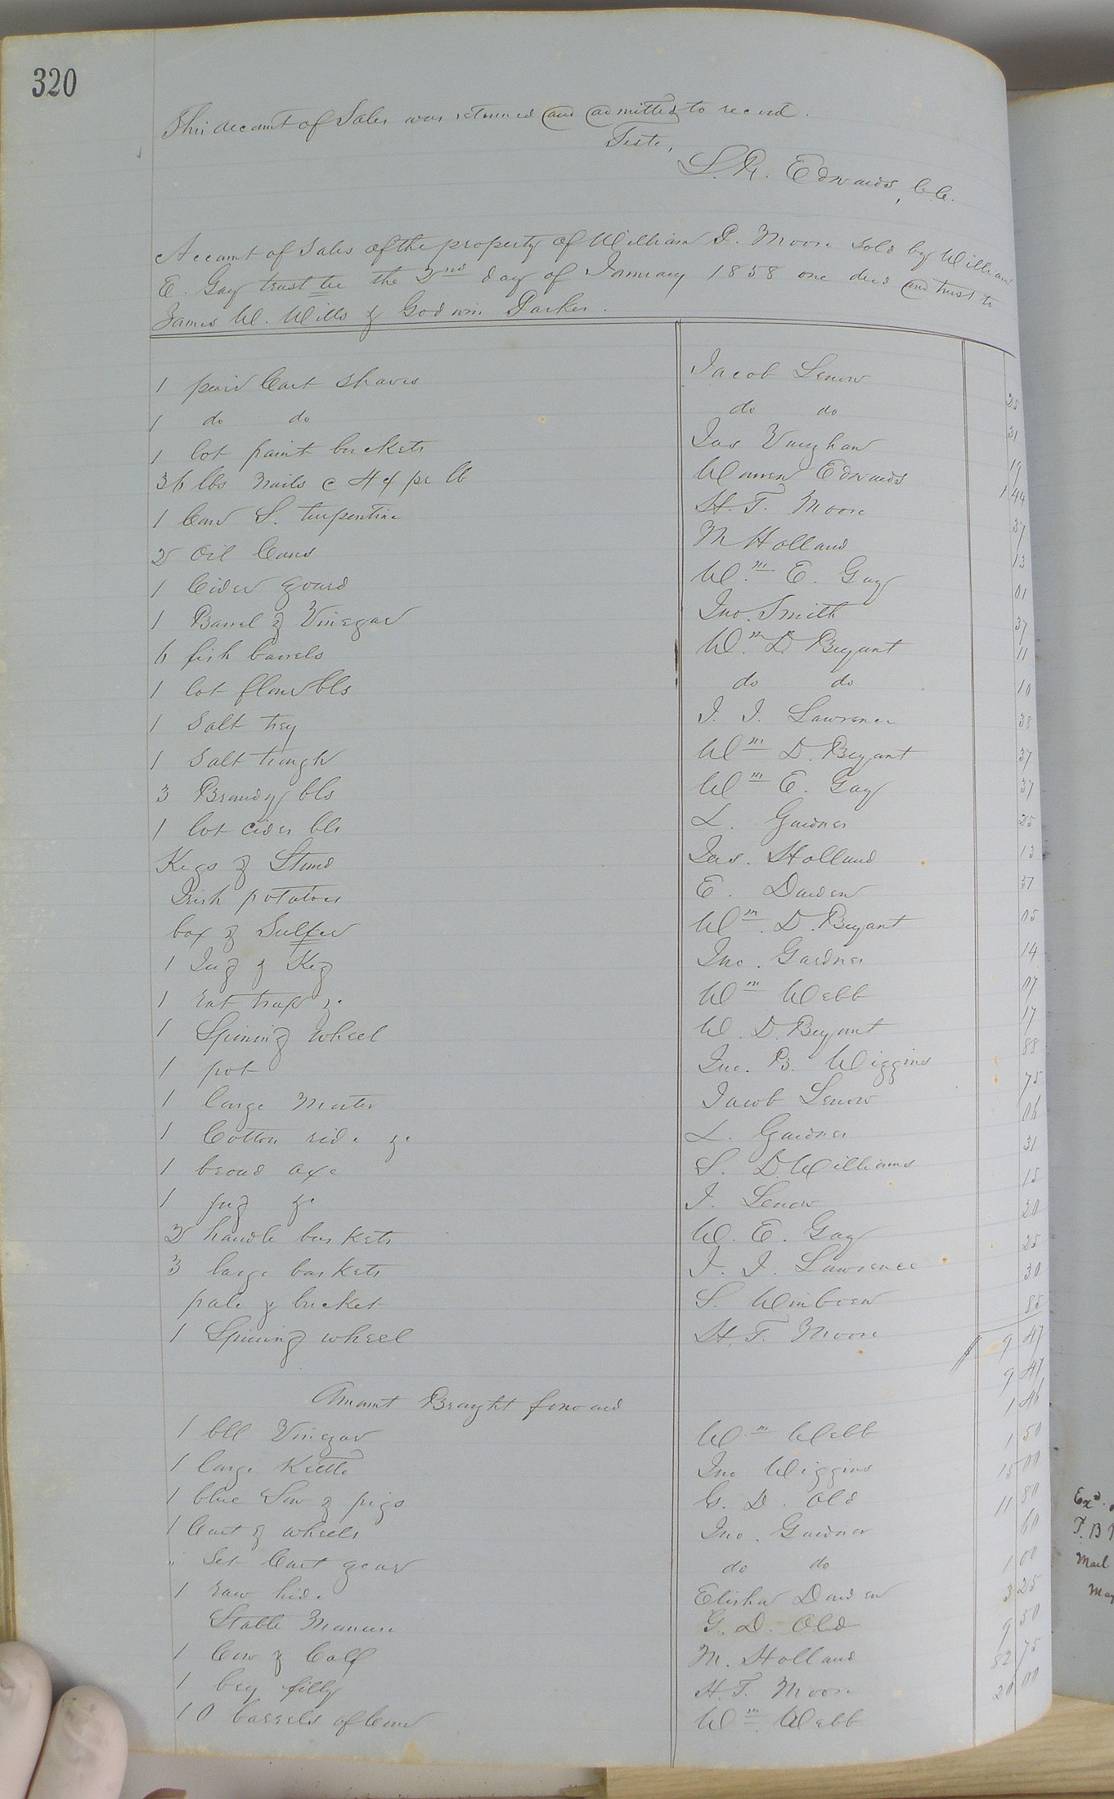 320
This account of Sales was returned and admitted to record.
Teste,
S. R. Edwards, CC.
Account of Sales of the property of William P. Moore sold by William
E. Gay trustee the 2nd day of January 1858 one deed and trust to
James W. Wills & Godwin Parker.
1 pair Cart shaves Jacob Lenow 25
1 do do do do 31
1 lot paint buckets Jas Vaughan 19
36 lbs Nails @ 4¢ pr lb Warren Edwards 1 44
1 Can S. turpentine H. T. Moore 37
2 Oil Cans M Holland 13
1 Cider gourd Wm E. Gay 01
1 Barrel & Vinegar Jno. Smith 37
6 fish barrels Wm D Bryant 11
1 lot flour bls do do 10
1 Salt trey J. J. Lawrence 38
1 Salt trough Wm D. Bryant 37
3 Brandy bls Wm E. Gay 37
1 lot cider bls L. Gardner 25
Kegs & Stand Jas. Holland 13
Irish potatoes E. Darden 57
box & Sulfer Wm D. Bryant 05
1 Jug & Keg Jno. Gardner 14
1 rat trap &c Wm Webb 07
1 Spining Wheel W. D. Bryant 17
1 pot Jno. B. Wiggins 88
1 large Morter Jacob Lenow 75
1 Cotton &c L. Gardner 06
1 broad axe S. D. Williams 31
1 jug &c J. Lenow 15
2 handle baskets W. E. Gay 20
3 large baskets J. J. Lawrence 25
pale & bucket S. 30
1 Spining wheel H. T. Moore 85
9 47
Amount Braught forward 9 47
1 bll Vinegar Wm Webb 1 46
1 large Kettle Jno Wiggins 1 50
1 blue Sow & pigs G. D. Old 15 00
1 Cart & wheels Jno. Gardner 11 80
" Set Cart gear do do 60
1 raw hide Elisha Darden 1 00
Stable Manure G. D. Old 3 25
1 Cow & Calf M. Holland 9 50
1 bey filly H. T. Moore 82 75
10 barrels of Corn Wm Webb 20 00